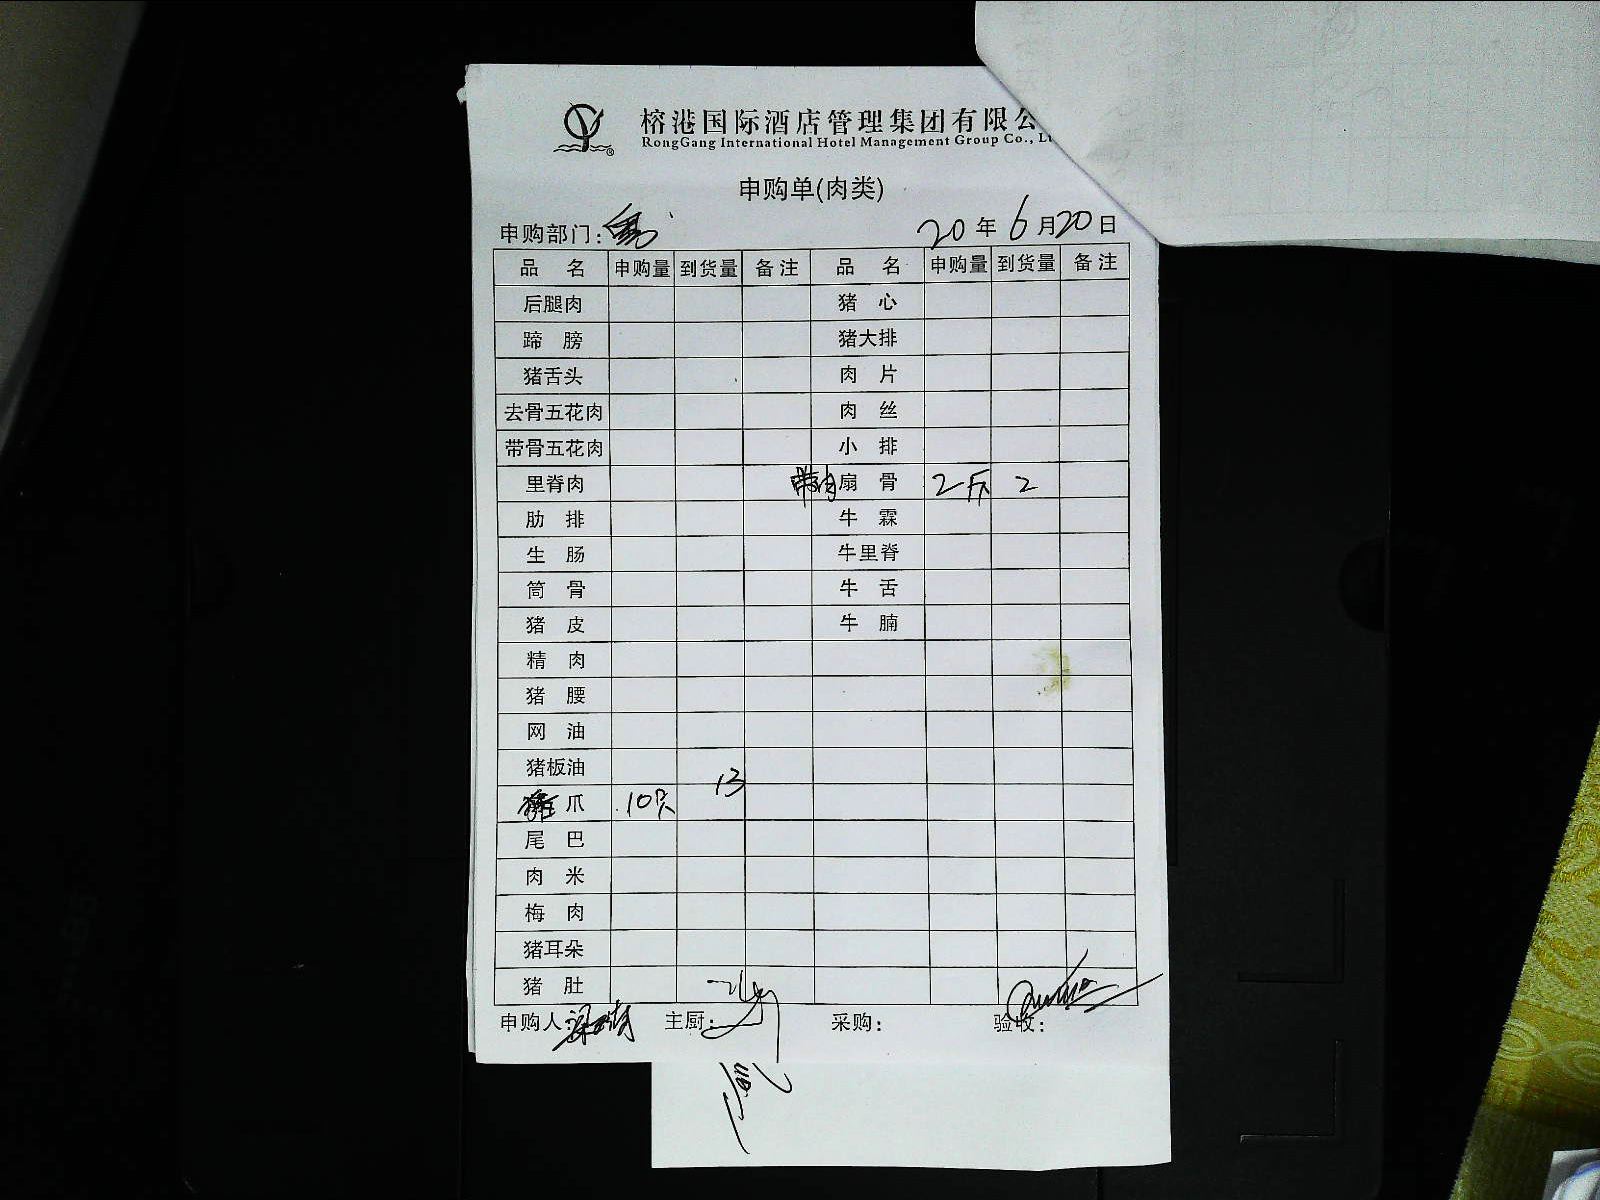 榕港国际酒店管理集团有限公
RongGang International Hotel Management Group Co., L
申购单(肉类)
申购部门： 20年6月20日
品名 申购量 到货量 备注 品名 申购量 到货量 备注
后腿肉 猪心
蹄膀 猪大排
猪舌头 肉片
去骨五花肉 肉丝
带骨五花肉 小排
里脊肉 带肉扇骨 2斤 2
肋排 牛霖
生肠 牛里脊
筒骨 牛舌
猪皮 牛腩
精肉
猪腰
网油
猪板油
爪 10只 13
尾巴
肉米
梅肉
猪耳朵
猪肚
申购人： 主厨： 采购： 验收：